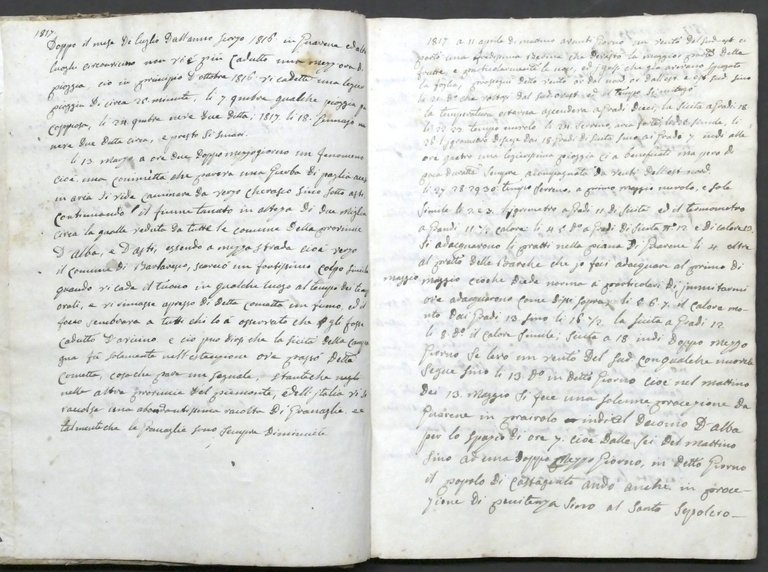 1817.
Doppo il mese di luglio dall'anno scorso 1816 in Guarene ed altri
luoghi circonvicini non vi è più caduto una mezz ora di
pioggia, cio in principio d'ottobre 1816 vi cadette una legera
pioggia di circa 25 minuti, li 7 9mbre qualche pioggia
copiosa, li 24 9mbre neve due ditta, 1817. li 18. Gennajo
neve due ditta circa, e presto si smarì.
li 13. Marzo a ore due doppo mezzogiorno un fenomeno
cioè una commetta che pareva una Gierba di paglia accesa
in aria si vide caminare da verso Cherasco sino sotto Asti
continuando il fiume tanaro in altezza di due miglia
circa la quale veduta da tutte le comune della provincia
D'alba, e D'asti, essendo a mezza strada cioè verso
il comune di Barbaresco, scaricò un fortissimo colpo simile
quando vi cade il tuono in qualche luogo al tempo dei temp
orali, e vi rimase apresso di detta cometta un fumo, ed il
foco sembrava a tutti chi lo à osservato che gli fosse
cadutto D'vicino. e cio può dirsi che la sicità della campa
gna fù solamente nell'estenzione ove passò detta
Cometta, cosa che pare un segnale, stante che
nelle altre provincie del piemonte, e dell'italia vi si
racolse una abondantissima racolta di Granaglie, e
talmente che le granaglie sono sempre diminuite
1817 a 11 aprile di mattino avanti giorno un vento del sud est ci
portò una grandissima idernia che devastò la maggior parte della
frutta, e particolarmente le uge, ed i gelsi che già avevano spiegato
la foglia, proseguì detto vento or dal nord or dall'est e est sud sino
le 21 do che voltosi dal sud ovest ed il tempo si mitigò
la temperatura esterna ascendeva a Gradi dieci, la sicità a Gradi 18
li 22 23 tempo nuvolo li 24 sereno, aria forte del sud simile, li
26 l'igrometro discese dai 18 gradi di sicità sino ai Grado 7 indi alle
ore quatro una legierissima pioggia ci a beneficati ma però di
poca duratta sempre acompagnata da venti dell'est nord.
li 27 28 29 30 tempo sereno, a primo maggio nuvolo, e sole
simile li 2 e 3. l'igrometro a Gradi 11 di sicità ed il termometro
a Gradi 11 1/2 calore li 4 5 do a Gradi di sicità no 12 e di calore 13.
Si adacquarono li pratti nella piana di Guarene li 4 oltre
al pratto delle Isarche che io feci adacquare al primo di
maggio maggio cioche diede norma a particolari di immitarmi
ove adacquarono come dissi sopra li 5 6 7 il calore mo-
ntò dai Gradi 13 sino li 16 1/2 la sicità a Gradi 12
li 8 do il calore simile, sicità a 18 indi doppo mezzo
Giorno se levò un vento del sud con qualche nuvole
segue sino li 13 do in detto giorno cioè nel mattino
dei 13. Maggio si fece una solenne processione da
Guarene in indi al Deconio D'alba
per lo spazio di ore 7. cioè dalle sei del mattino
sino ad una doppo mezzo Giorno, in detto Giorno
il popolo di Castagnito andò anche in proce-
zione di penitenza sino al Santo Sepolcro -